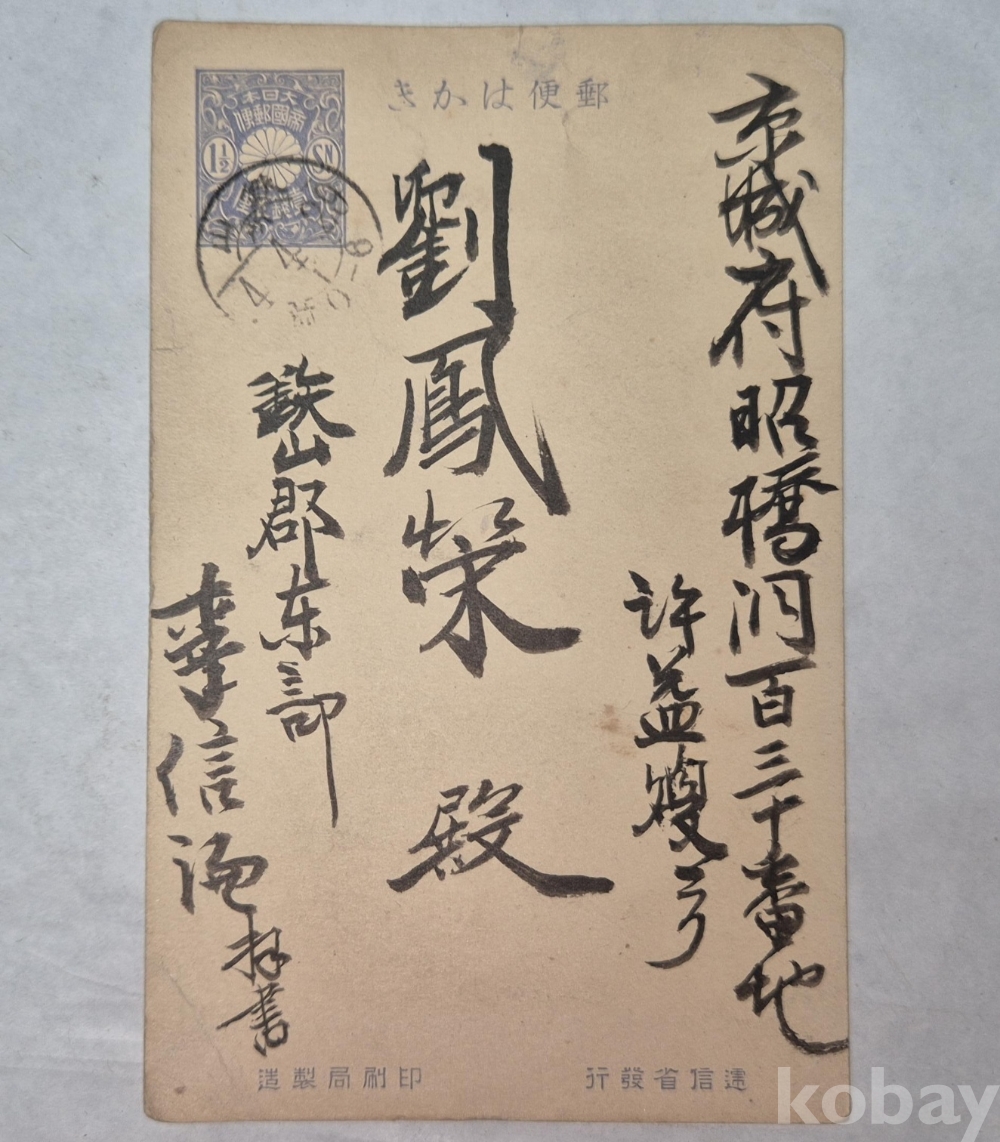 郵便はかき
大日本
帝國郵便
1½
SN
鐵山
4.4
8
京城府昭橋洞百三十番地
許益嫂方
劉鳳榮殿
鐵山郡东部
李信 拜書
遞信省發行
印刷局製造
kobay